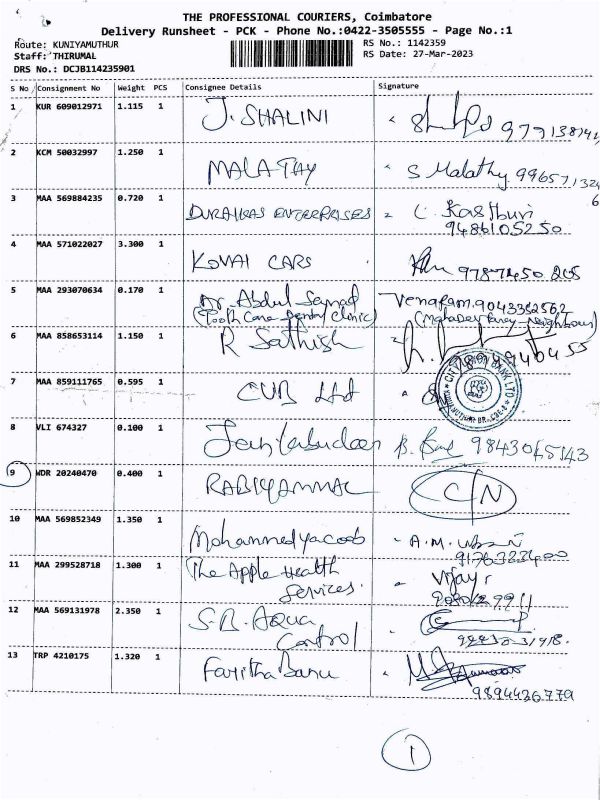 THE PROFESSIONAL COURIERS, Coimbatore
Delivery Runsheet - PCK - Phone No.:0422-3505555 - Page No.:1
Route: KUNIYAMUTHUR
RS No.: 1142359
Staff: THIRUMAL
RS Date: 27-Mar-2023
DRS No.: DCJB114235901
S No Consignment No Weight PCS Consignee Details Signature
1 KUR 609012971 1.115 1 J. SHALINI
2 KCM 50032997 1.250 1 MALATHY S Malathy 996571324
6
3 MAA 569884235 0.720 1 ENTERPRISES L. Kasthuri
9486105250
4 MAA 571022027 3.300 1 KOVAI CARS 9787450205
5 MAA 293070634 0.170 1 Dr. Abdul
(Tooth Care Dental Clinic)
6 MAA 858653114 1.150 1 R Sathish
7 MAA 859111765 0.595 1 CUB Ltd
CITY UNION BANK LTD.
8 VLI 674327 0.100 1
9 WDR 20240470 0.400 1 RABIYAMMAL C/N
10 MAA 569852349 1.350 1 Mohammedyacoob - A.M.
11 MAA 299528718 1.300 1 The Apple Health
Services. Vijay
12 MAA 569131978 2.350 1 S.B. Aqua
Control
13 TRP 4210175 1.320 1 Faritha Banu
9894426779
1